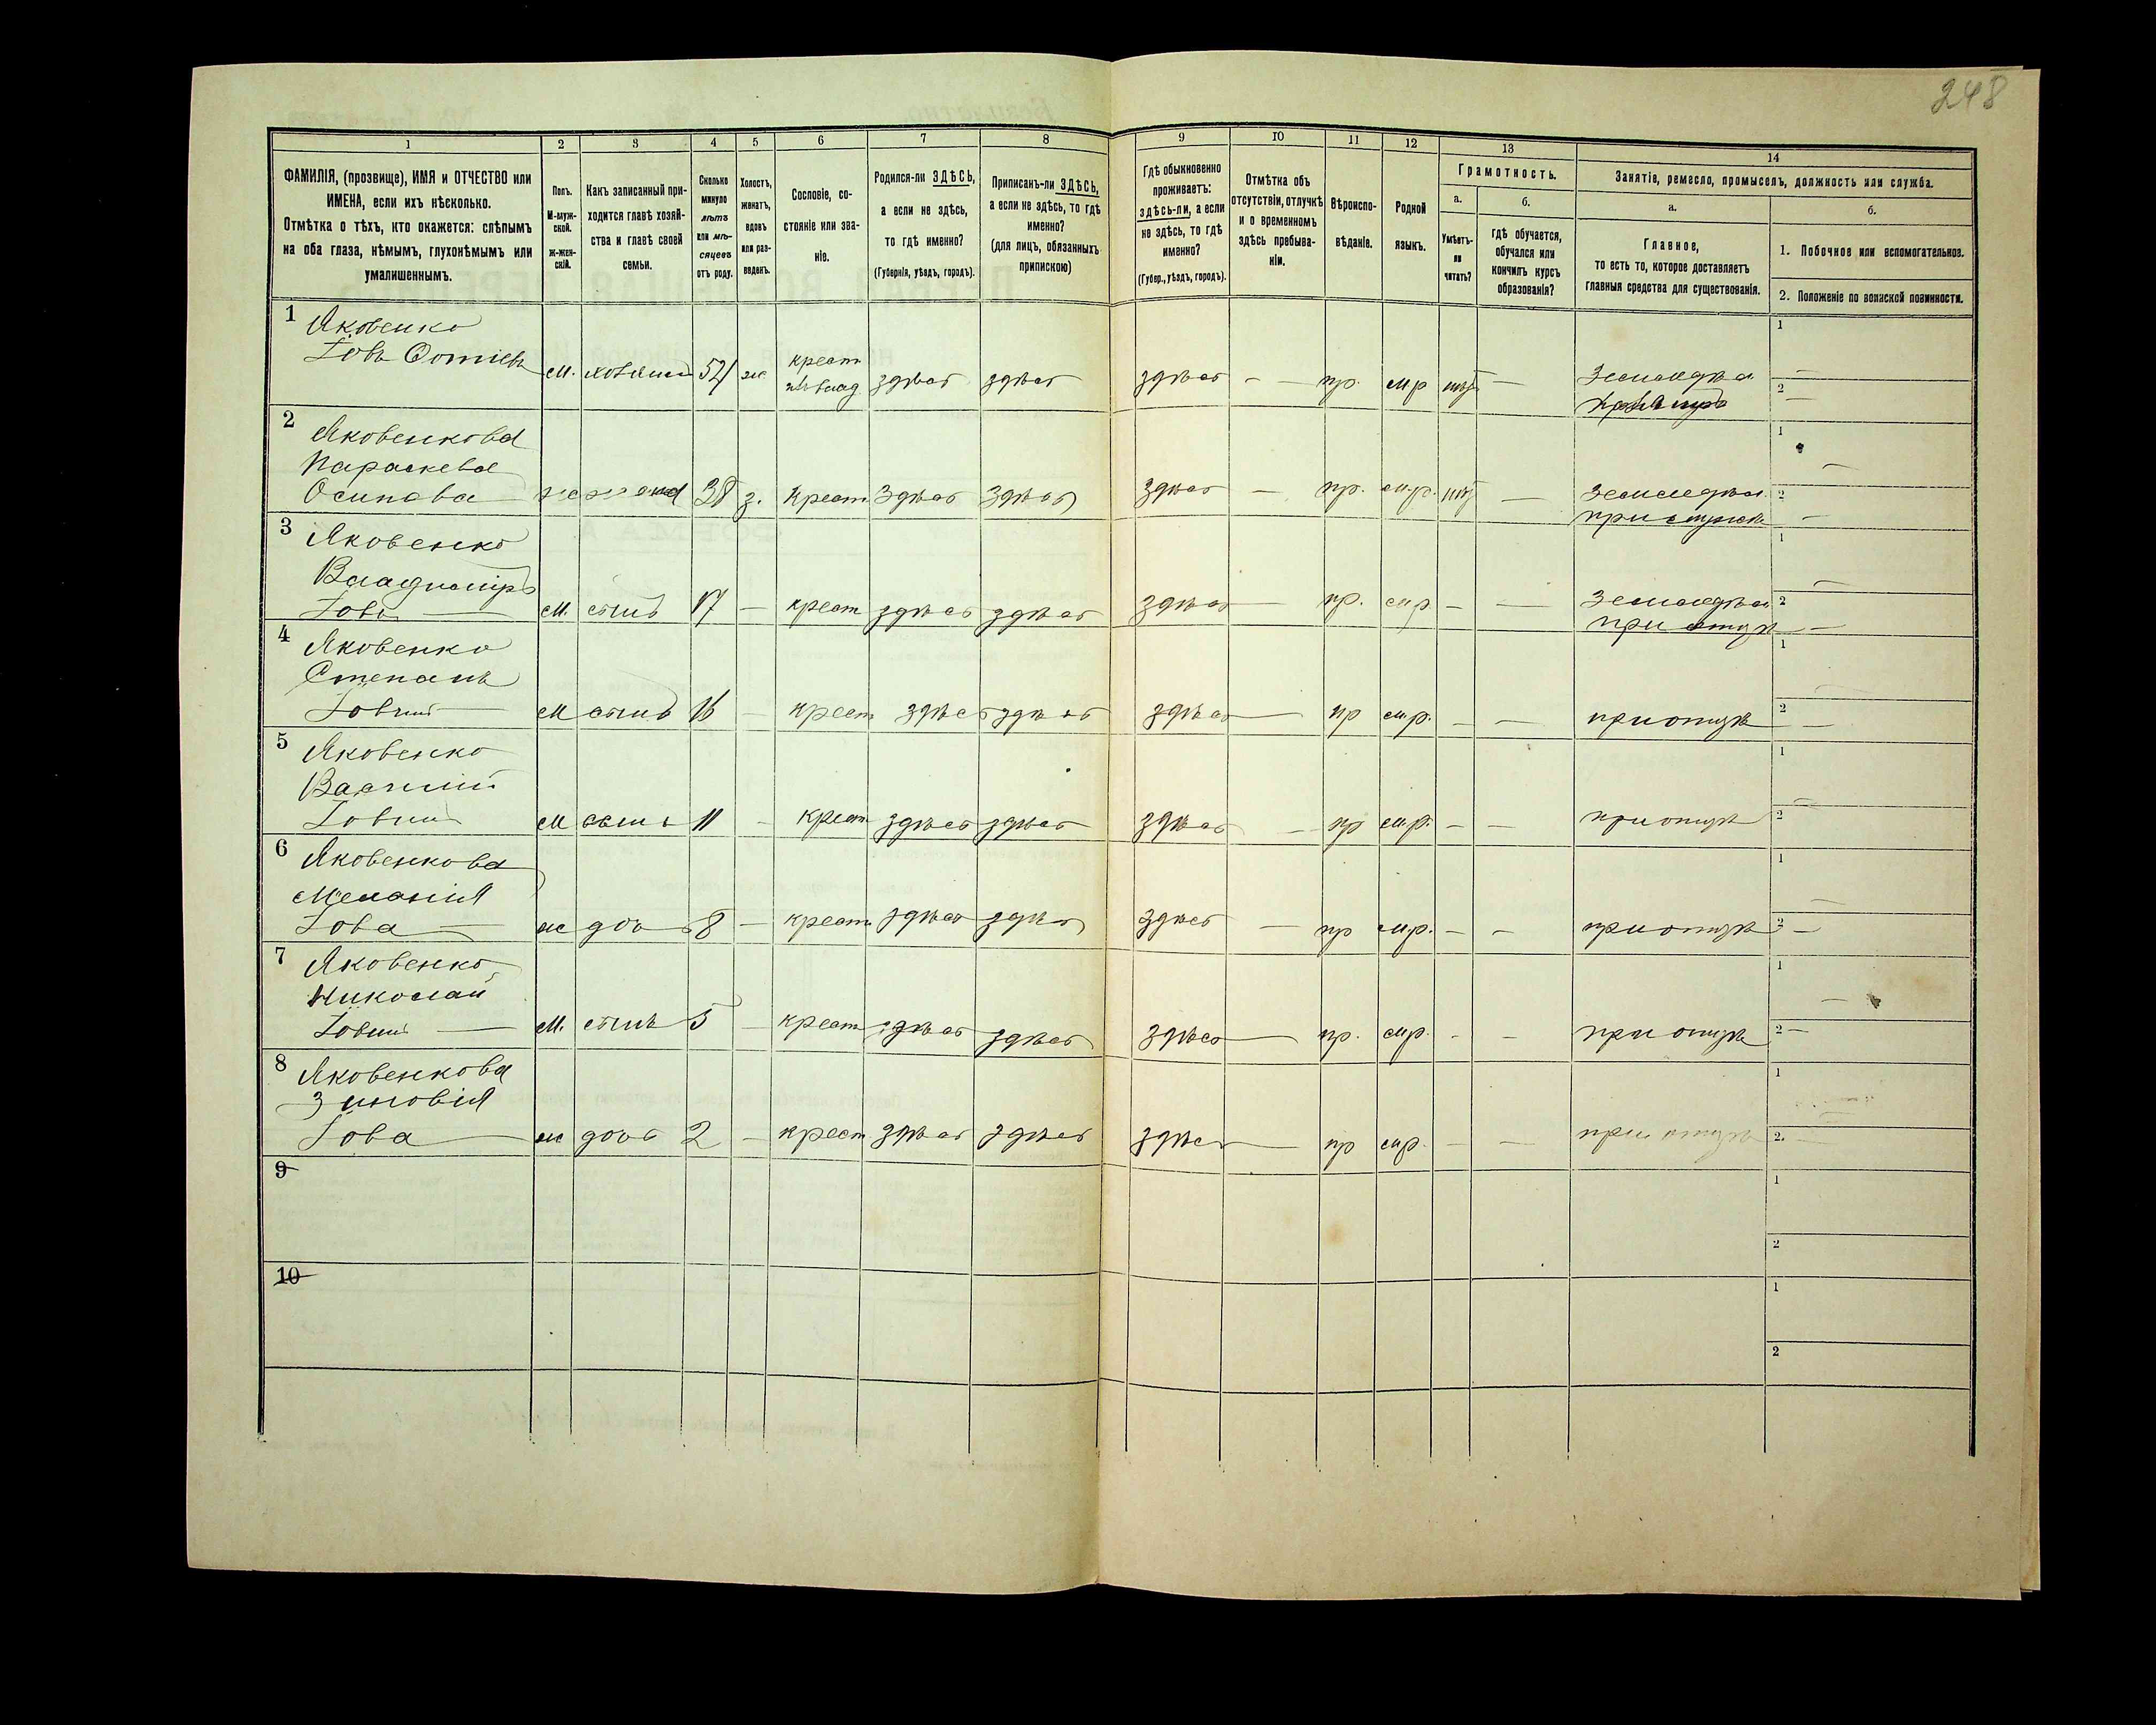 248
1 2 3 4 5 6 7 8 9 10 11 12 13 14
ФАМИЛІЯ, (прозвище), ИМЯ и ОТЧЕСТВО или
ИМЕНА, если ихъ нѣсколько.
Отмѣтка о тѣхъ, кто окажется: слѣпымъ
на оба глаза, нѣмымъ, глухонѣмымъ или
умалишеннымъ.
Полъ.
М-муж-
ской.
ж-жен-
скій.
Какъ записанный при-
ходится главѣ хозяй-
ства и главѣ своей
семьи.
Сколько
минуло
лѣтъ
или мѣ-
сяцевъ
отъ роду.
Холостъ,
женатъ,
вдовъ
или раз-
веденъ.
Сословіе, со-
стояніе или зва-
ніе.
Родился-ли ЗДѢСЬ,
а если не здѣсь,
то гдѣ именно?
(Губернія, уѣздъ, городъ).
Приписанъ-ли ЗДѢСЬ,
а если не здѣсь, то гдѣ
именно?
(для лицъ, обязанныхъ
припискою)
Гдѣ обыкновенно
проживаетъ:
здѣсь-ли, а если
не здѣсь, то гдѣ
именно?
(Губер., уѣздъ, городъ).
Отмѣтка объ
отсутствіи, отлучкѣ
и о временномъ
здѣсь пребыва-
ніи.
Вѣроиспо-
вѣданіе.
Родной
языкъ.
Грамотность.
а.
Умѣетъ-
ли
читать?
б.
гдѣ обучается,
обучался или
кончилъ курсъ
образованія?
Занятіе, ремесло, промыселъ, должность или служба.
а.
Главное,
то есть то, которое доставляетъ
главныя средства для существованія.
б.
1. Побочное или вспомогательное.
2. Положеніе по воинской повинности.
1 Яковенко
Іовъ
М. хозяинъ ж крест здѣсь здѣсь здѣсь - - пр. мр - 1 2
2 Яковенкова
Параскева
Осипова ж жена 38 з. крест здѣсь здѣсь здѣсь - пр. м.р. - 1 2
3 Яковенко
Владиміръ
М. сынъ 17 - крест здѣсь здѣсь здѣсь - пр. мр - - 1 2
4 Яковенко
Степанъ
М сынъ 16 - крест здѣсь здѣсь здѣсь - пр м.р. - - при отцѣ 1 2
5 Яковенко
Василій
М сынъ 11 - крест здѣсь здѣсь здѣсь - пр м.р. - - при отцѣ 1 2
6 Яковенкова
Меланія
Іова ж дочь 8 - крест здѣсь здѣсь здѣсь - пр м.р. - - при отцѣ 1 2
7 Яковенко
Николай
М. сынъ 5 - крест здѣсь здѣсь здѣсь - пр. мр. - - при отцѣ 1 2
8 Яковенкова
Зиновія
Іова ж дочь 2 - крест здѣсь здѣсь здѣсь - пр мр. - - при отцѣ 1 2
9 1 2
10 1 2